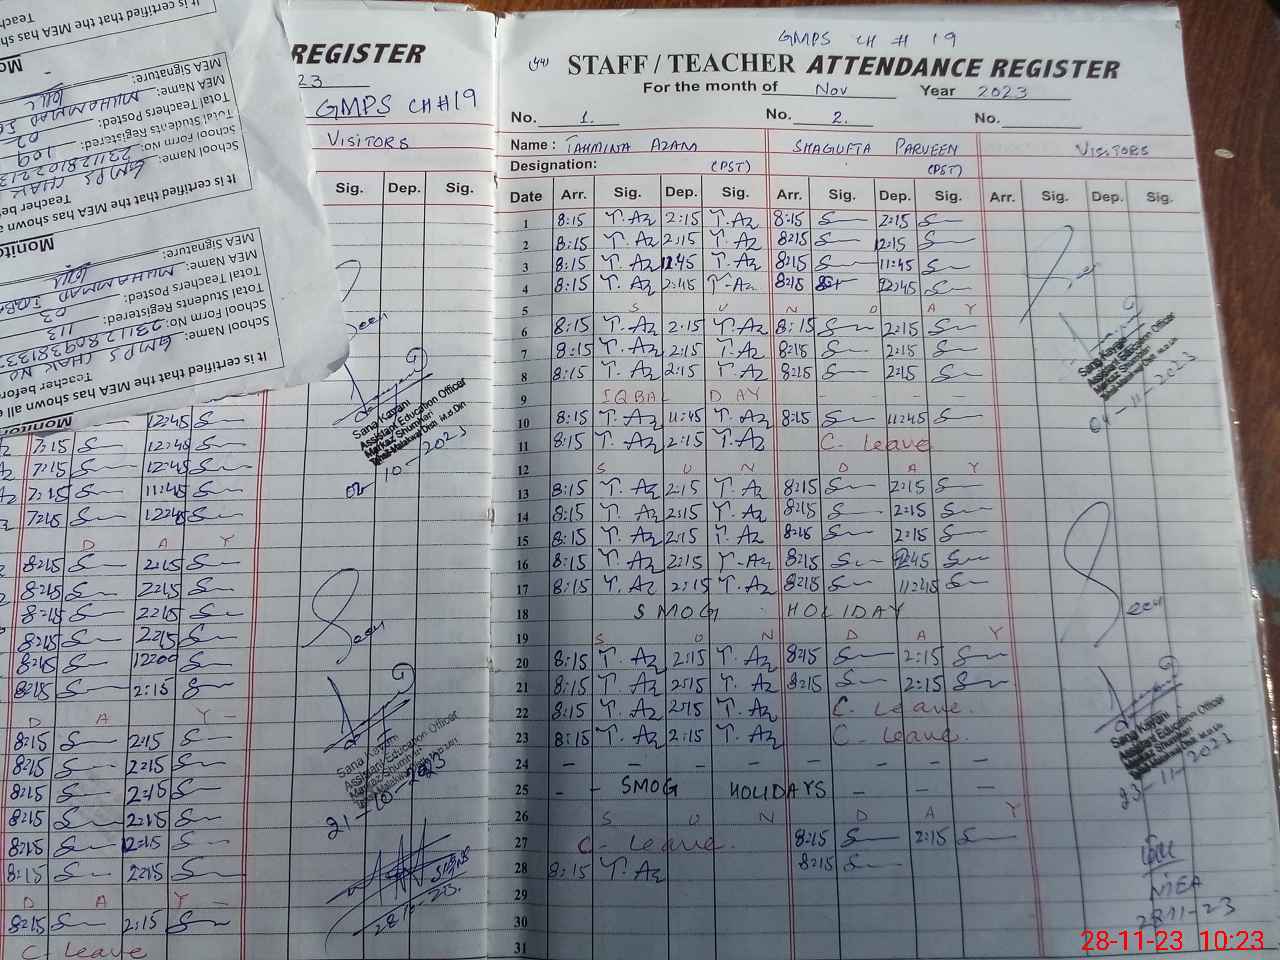 It is certified that the MEA has sh
Teach
Mo
MEA Signature:
MEA Name:
MUHAMMAD
Total Teachers Posted:
02
Total Students Registered:
109
School Form no:
School Name:
GMPS CHAK
It is certified that the MEA has shown a
Teacher be
Monitor
MEA Signature:
MEA Name:
MUHAMMAD
Total Teachers Posted:
03
Total Students Registered:
113
School Form No:
School Name:
GMPS CHAK NO
It is certified that the MEA has shown all
Teacher befor
REGISTER
23
GMPS CH #19
VISITORS
Sig. Dep. Sig.
12:45
7:15 12:45
7:15 12:45
7:15 11:45
7:15 12:45
D A Y
8:15 2:15
8:15 2:15
8:15 2:15
8:15 2:15
8:15 1200
8:15 2:15
D A Y
8:15 2:15
8:15 2:15
8:15 2:15
8:15 2:15
8:15 2:15
8:15 2:15
D A Y
8:15 2:15
C- Leave
Seen
Sana Kayani
Assistant Education Officer
Markaz Shumhari
10-2023
Seen
Sana Kayani
Assistant Education Officer
21-10-2023
28-10-23.
GMPS CH # 19
(44) STAFF / TEACHER ATTENDANCE REGISTER
For the month of Nov Year 2023
No. 1. No. 2. No.
Name : TAHMINA AZAM SHAGUFTA PARVEEN VISITORS
Designation: (PST) (PST)
Date Arr. Sig. Dep. Sig. Arr. Sig. Dep. Sig. Arr. Sig. Dep. Sig.
1 8:15 T.Az 2:15 T.Az 8:15 2:15
2 8:15 T.Az 2:15 T.Az 8:15 2:15
3 8:15 T.Az 11:45 T.Az 8:15 11:45
4 8:15 T.Az 2:45 T.Az 8:15 12:45
5 S U N D A Y
6 8:15 T.Az 2:15 T.Az 8:15 2:15
7 8:15 T.Az 2:15 T.Az 8:15 2:15
8 8:15 T.Az 2:15 T.Az 8:15 2:15
9 IQBAL DAY - - - -
10 8:15 T.Az 11:45 T.Az 8:15 11:45
11 8:15 T.Az 2:15 T.Az C- Leave
12 S U N D A Y
13 8:15 T.Az 2:15 T.Az 8:15 2:15
14 8:15 T.Az 2:15 T.Az 8:15 2:15
15 8:15 T.Az 2:15 T.Az 8:15 2:15
16 8:15 T.Az 2:15 T.Az 8:15 2:45
17 8:15 T.Az 2:15 T.Az 8:15 11:45
18 SMOG HOLIDAY
19 S U N D A Y
20 8:15 T.Az 2:15 T.Az 8:15 2:15
21 8:15 T.Az 2:15 T.Az 8:15 2:15
22 8:15 T.Az 2:15 T.Az C- Leave.
23 8:15 T.Az 2:15 T.Az C- Leave.
24 - - - - - - - -
25 - - SMOG HOLIDAYS - - -
26 S U N D A Y
27 C- Leave. 8:15 2:15
28 8:15 T.Az 8:15
29
30
31
Seen
Sana Kayani
Assistant Education Officer
04-11-2023
Seen
Sana Kayani
Assistant Education Officer
23-11-2023
MEA
28-11-23
28-11-23 10:23